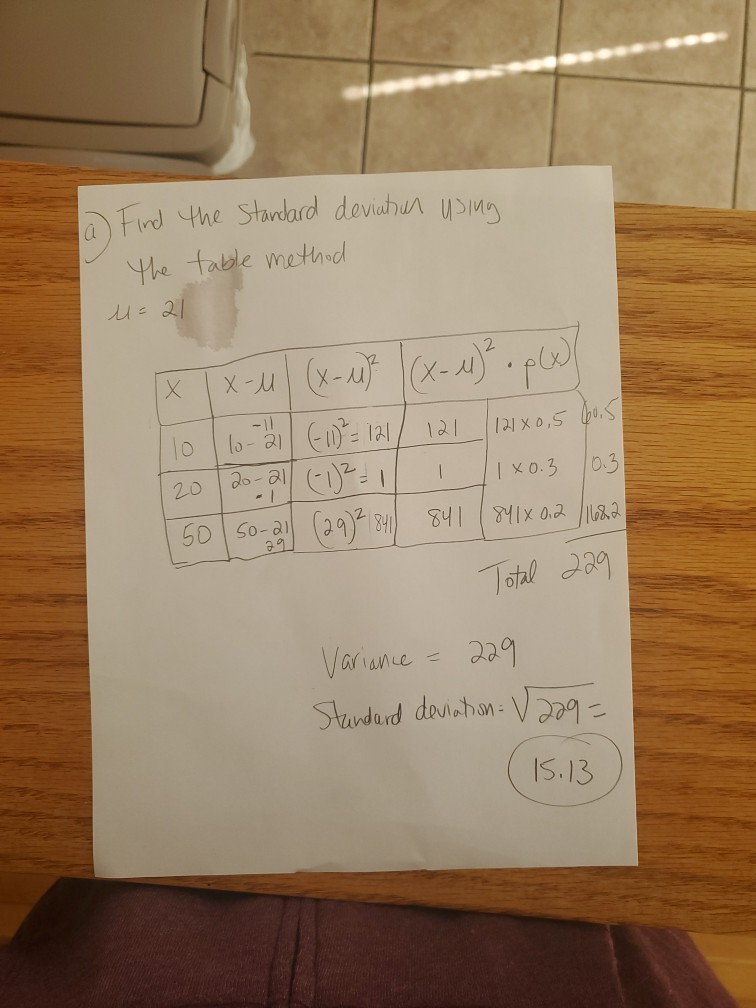 a) Find the Standard deviation using
the table method
μ = 21
x | x-μ | (x-μ)² | (x-μ)² · p(x)
10 | -11 10-21 | (-11)² = 121 | 121 | 121 x 0.5 | 60.5
20 | 20-21 -1 | (-1)² = 1 | 1 | 1 x 0.3 | 0.3
50 | 50-21 29 | (29)² 841 | 841 | 841 x 0.2 | 168.2
Total 229
Variance = 229
Standard deviation = √229 =
15.13